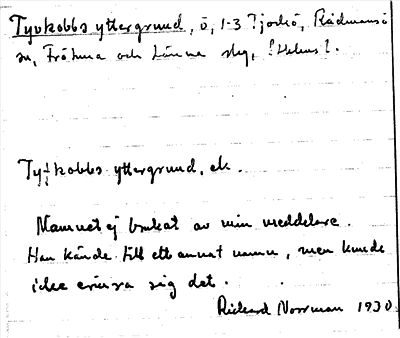 Tyvkobbs yttergrund, ö, 1-3 Tjockö, Rådmansö
sn, Frötuna och Länna skg,
Ty kobbs yttergrund, ek.
Namnet ej brukat av min meddelare.
Han kände till ett annat namn, men kunde
icke erinra sig det.
Rickard Norrman 1930